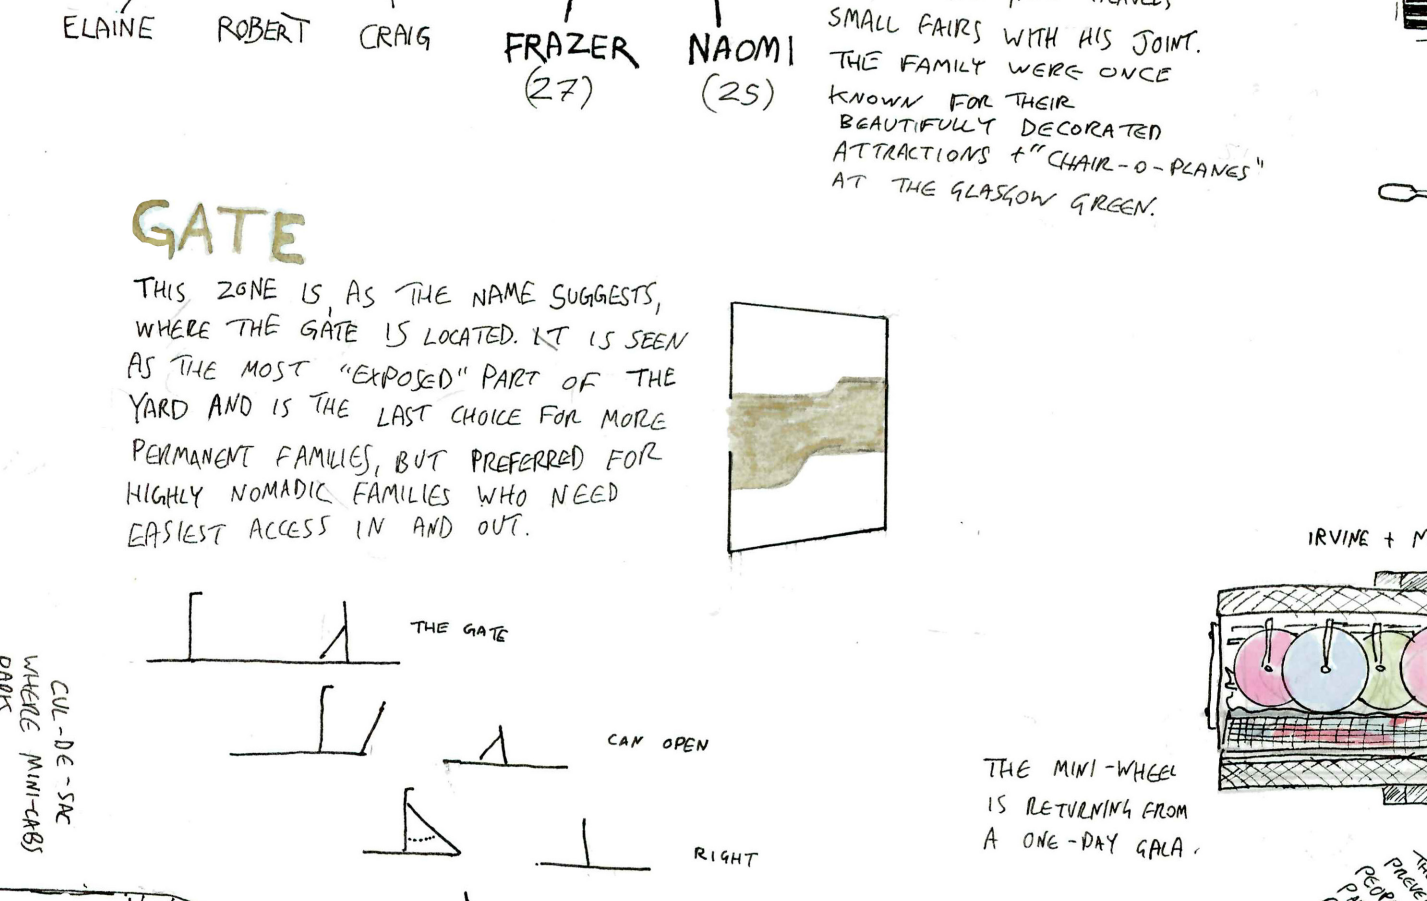 ELAINE
ROBERT
CRAIG
FRAZER
(27)
NAOMI
(25)
SMALL FAIRS WITH HIS JOINT.
THE FAMILY WERE ONCE
KNOWN FOR THEIR
BEAUTIFULLY DECORATED
ATTRACTIONS + "CHAIR-O-PLANES"
AT THE GLASGOW GREEN.
GATE
THIS ZONE IS, AS THE NAME SUGGESTS,
WHERE THE GATE IS LOCATED. IT IS SEEN
AS THE MOST "EXPOSED" PART OF THE
YARD AND IS THE LAST CHOICE FOR MORE
PERMANENT FAMILIES, BUT PREFERRED FOR
HIGHLY NOMADIC FAMILIES WHO NEED
EASIEST ACCESS IN AND OUT.
THE GATE
CAN OPEN
RIGHT
CUL-DE-SAC
WHERE MINI-CABS
PARK
IRVINE +
THE MINI-WHEEL
IS RETURNING FROM
A ONE-DAY GALA.